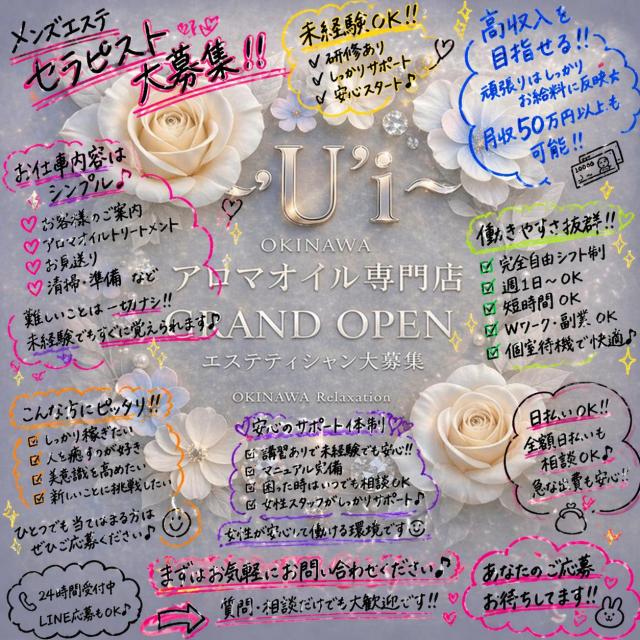 メンズエステ
セラピスト
大募集!!
未経験OK!!
✓ 研修あり
✓ しっかりサポート
✓ 安心スタート♪
高収入を
目指せる!!
頑張りはしっかり
お給料に反映☆
月収50万円以上も
可能!!
お仕事内容は
シンプル♪
♡ お客様のご案内
♡ アロマオイルトリートメント
♡ お見送り
♡ 清掃・準備 など
難しいことは一切ナシ!!
未経験でもすぐに覚えられます♪
~'U'i~
OKINAWA
アロマオイル専門店
GRAND OPEN
エステティシャン大募集
OKINAWA Relaxation
働きやすさ抜群!!
☑ 完全自由シフト制
☑ 週1日～OK
☑ 短時間 OK
☑ Wワーク・副業 OK
☑ 個室待機で快適♪
こんな方にピッタリ!!
☑ しっかり稼ぎたい
☑ 人と癒すが好き
☑ 美意識を高めたい
☑ 新しいことに挑戦したい
ひとつでも当てはまる方は
ぜひご応募ください♪
安心のサポート体制
☑ 講習ありで未経験でも安心!!
☑ マニュアル完備
☑ 困った時はいつでも相談OK
☑ 女性スタッフがしっかりサポート♪
女性が安心して働ける環境です
日払いOK!!
全額日払いも
相談OK♪
急な出費も安心!!
24時間受付中
LINE応募もOK♪
まずはお気軽にお問い合わせください♪
質問・相談だけでも大歓迎です!!
あなたのご応募
お待ちしてます!!